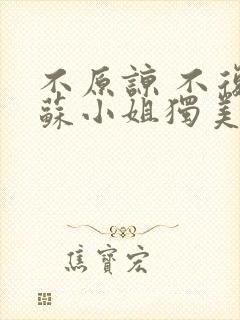 不原諒 不復
蘇小姐獨美
焦寶宏